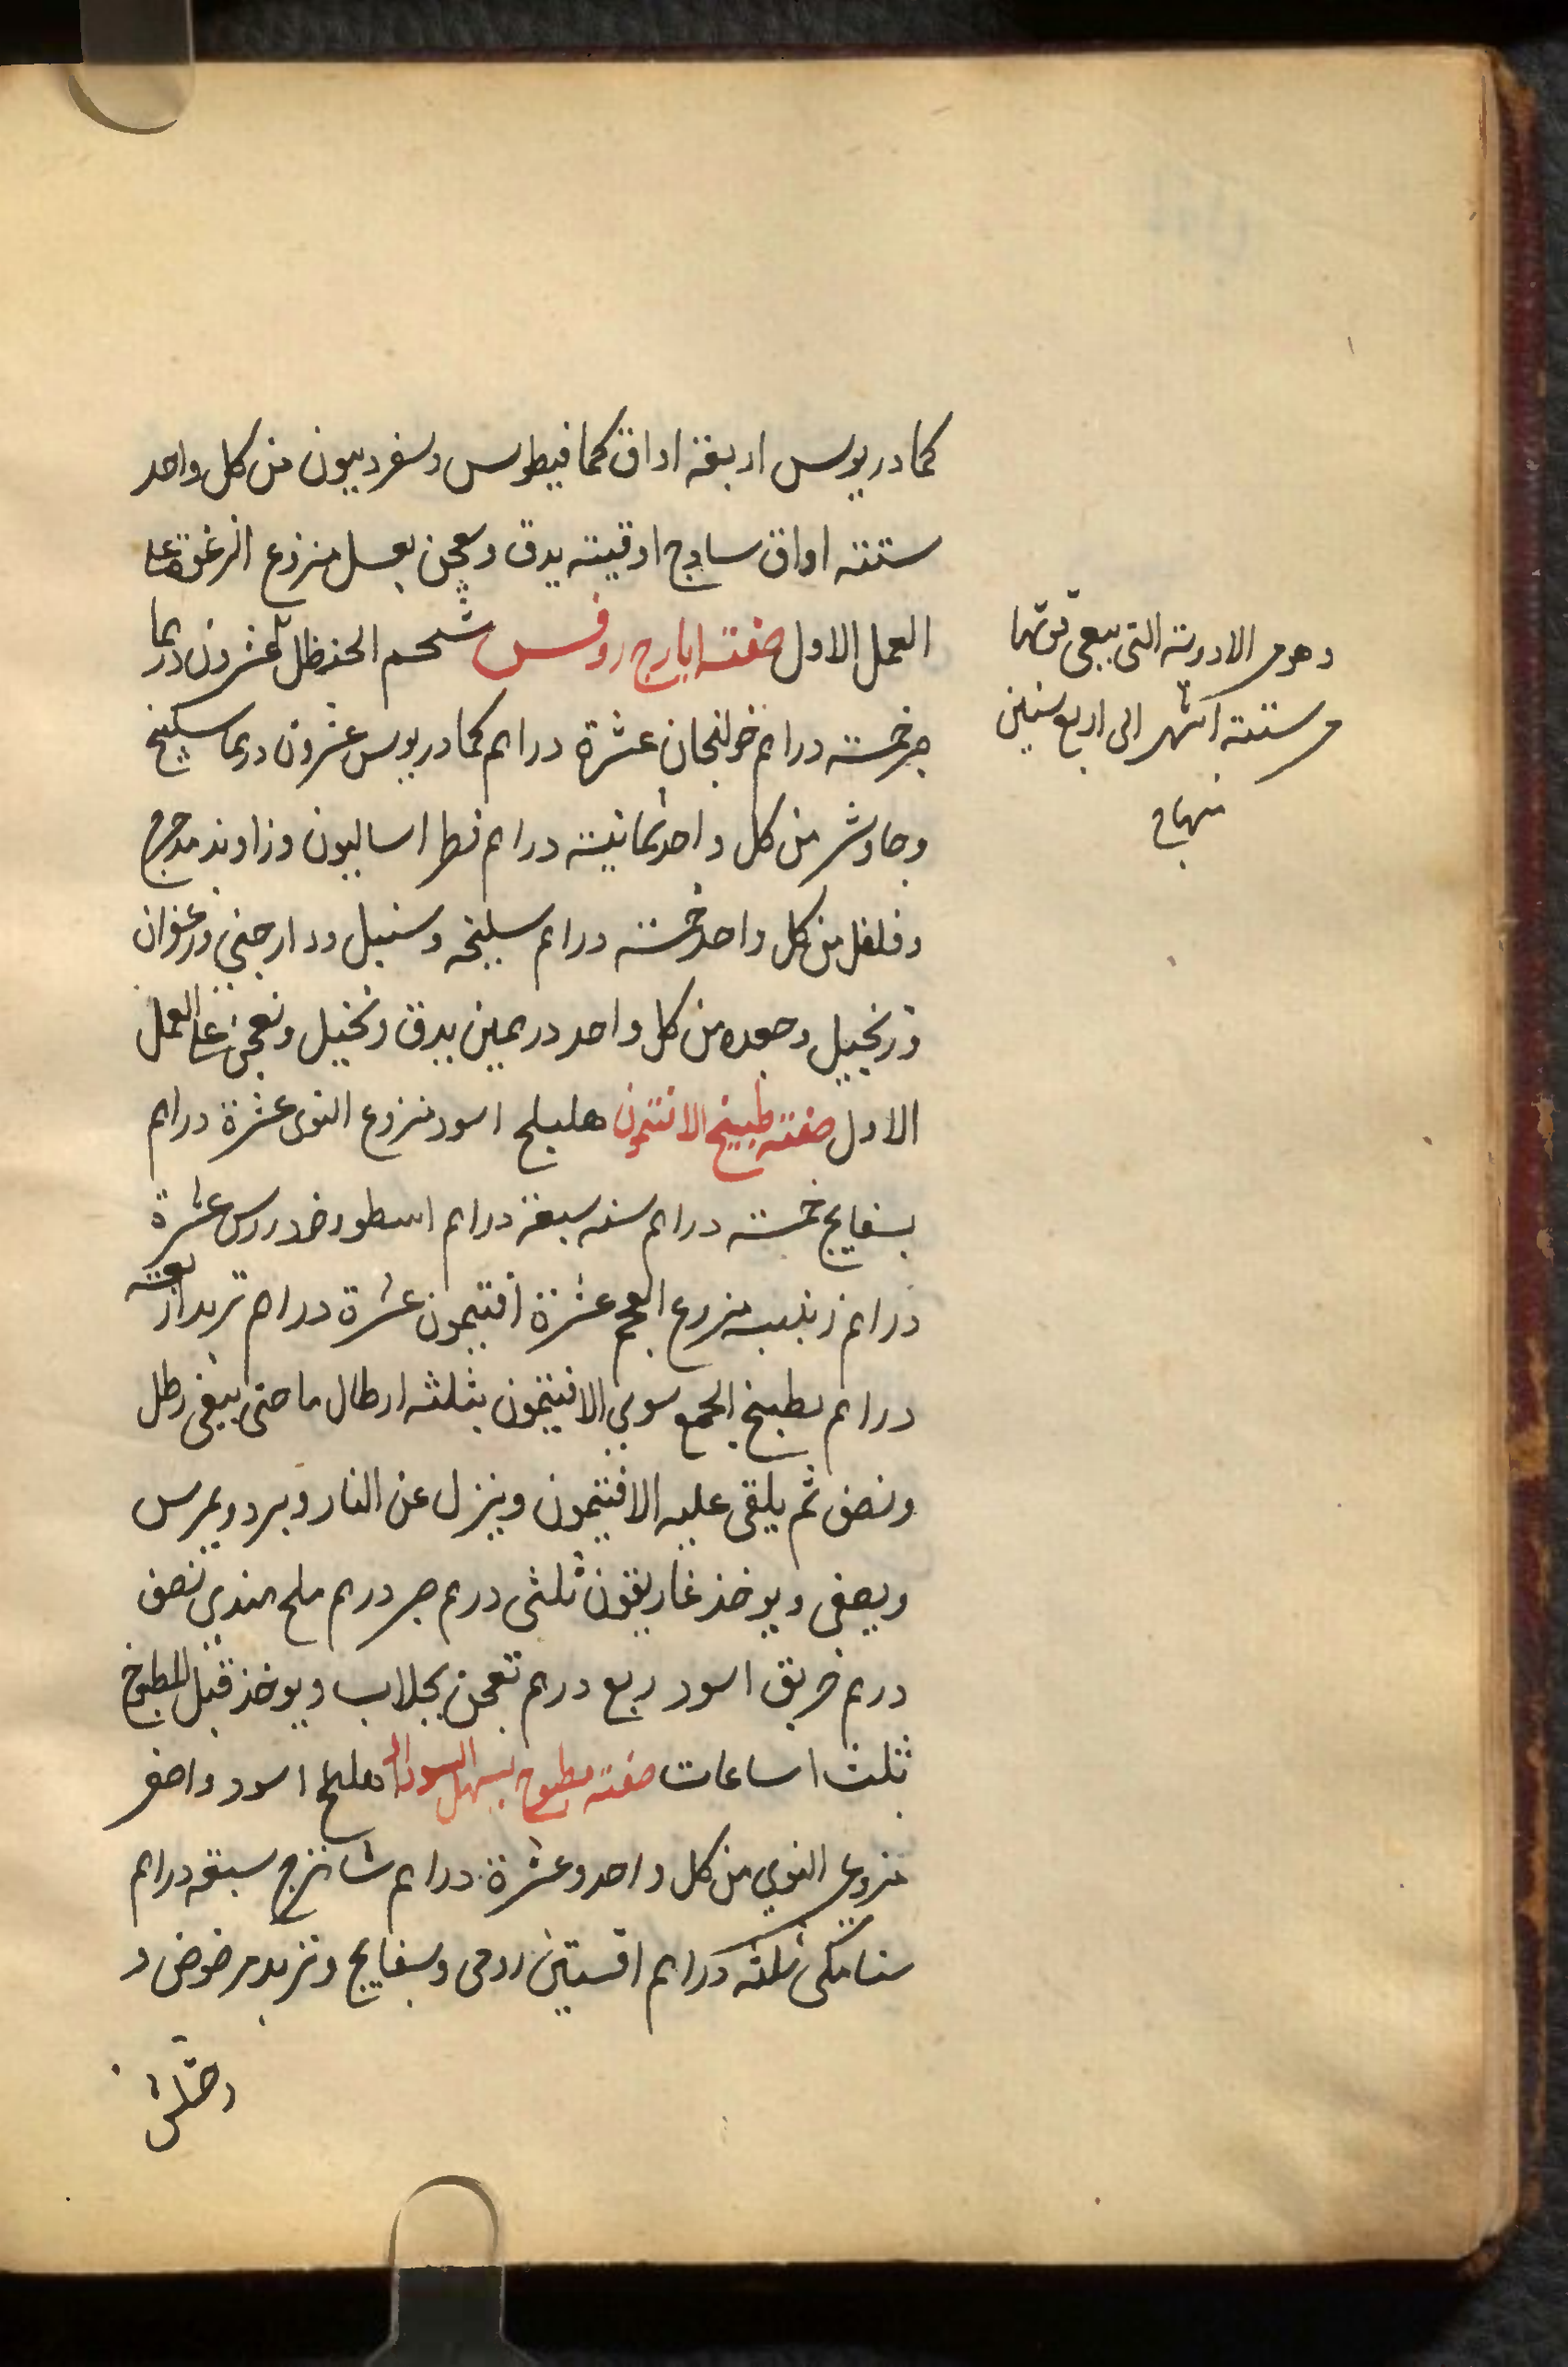 كمادريوس اربعة اواق كمافيطوس وسفرديون من كل واحد
ستة اواق ساذج اوقية يدق ويعجن بعسل منزوع الرغوة على
العمل الاول صفة ايارج روفس شحم الحنظل عشرون درهما
صبر خمسة دراهم خولنجان عشرة دراهم كمادريوس عشرون درهما سكبينج
وجاوشير من كل واحد ثمانية دراهم فطراساليون وزراوند مدحرج
وفلفل من كل واحد خمسة دراهم سليخة وسنبل ودارجيني وزعفران
وزنجبيل وجعده من كل واحد درهمين يدق وتنخيل وتعجن على العمل
الاول صفة طبيخ الافتيمون هليلج اسود منزوع النوى عشرة دراهم
بسفايج خمسة دراهم سنه سبعة دراهم اسطوخدروس عشرة
دراهم زبيب منزوع العجم عشرة افتيمون عشرة دراهم تربد اربعة
دراهم يطبخ الجميع سوي الافتيمون بثلثة ارطال ما حتى يبقى رطل
ونصف ثم يلقى عليه الافتيمون وينزل عن النار ويبرد ويمرس
ويصفى ويوخذ غاريقون ثلثى درهم صبر درهم ملح هندي نصف
درهم خربق اسود ربع درهم تعجن بجلاب ويوخذ قبل المطبوخ
بثلث اساعات صفة مطبوخ يسهل السودا هليلج اسود واصفر
منزوع النوي من كل واحد وعشرة دراهم شاهترج سبعة دراهم
سنا مكى ثلثة دراهم افسنتين رومى وبسفايج وتربد مرضوض و
وحشايش
وهو من الادوية التى يبقى قوتها
من ستة اشهر الى اربع سنين
منهاج